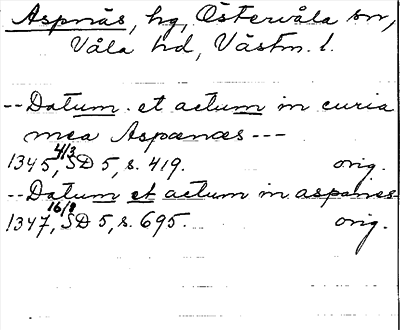 Aspnäs, hg, Östervåla sn,
Våla hd, Västm. l.
-- Datum et actum in curia
mea Aspænæs ---
1345, 4/3, SD 5, s. 419. orig.
-- Datum et actum in aspanes
1347, 16/8, SD 5, s. 695. orig.